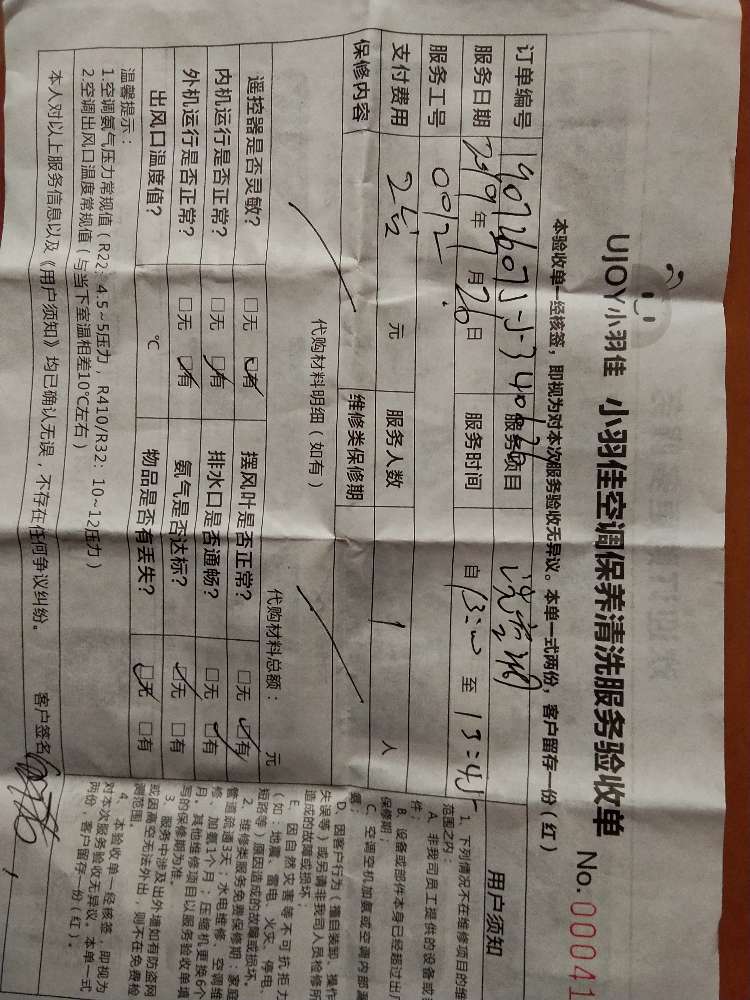 UJOY小羽佳 小羽佳空调保养清洗服务验收单 No. 00041
本验收单一经核签，即视为对本次服务验收无异议。本单一式两份，客户留存一份（红）
订单编号 服务项目 洗空调
服务日期 2019年9月26日 服务时间 自13:00至13:45
服务工号 0012
支付费用 元 服务人数 1 人
保修内容 维修类保修期
代购材料明细（如有） 代购材料总额： 元
遥控器是否灵敏？ □无 ☑有 摆风叶是否正常？ □无 ☑有
内机运行是否正常？ □无 ☑有 排水口是否通畅？ □无 ☑有
外机运行是否正常？ □无 ☑有 氨气是否达标？ ☑无 □有
出风口温度值？ ℃ 物品是否有丢失？ ☑无 □有
温馨提示：
1.空调氨气压力常规值（R22：4.5~5压力，R410/R32：10~12压力）
2.空调出风口温度常规值（与当下室温相差10℃左右）
本人对以上服务信息以及《用户须知》均已确认无误，不存在任何争议纠纷。 客户签名
用户须知
1、下列情况不在维修项目的维
范围之内：
A、非我司员工提供的设备或
件；
B、设备或部件本身已经超过出厂
保修期；
C、空调空机加氨或空调内部漏
氨；
D、因客户行为（擅自装卸、操作
失误等）或另请非我司人员检修所
造成的故障或损坏；
E、因自然灾害等不可抗拒力
（如：地震、雷电、火灾、停电、
短路等）原因造成的故障或损坏。
2、维修类服务免费保修期：家庭
管道疏通3天；水电维修、空调维
修、加氨1个月；压缩机更换6个
月。其他维修项目以服务验收单填
写的保修期为准。
3、服务中涉及出外墙如有防盗网
或因隔空无法外出，则不在免费检
测范围。
4、本验收单一经核签，即视为
对本次服务验收无异议。本单一式
两份，客户留存一份（红）。